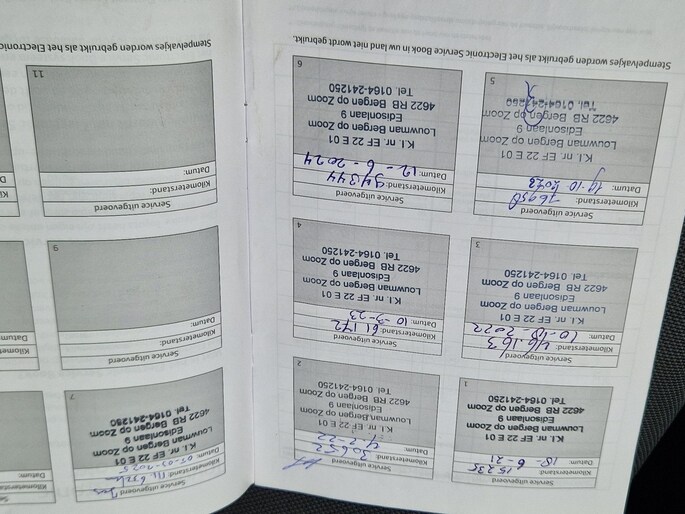 Service uitgevoerd
Kilometerstand: 15235
Datum: 18-6-21
K.I. nr. EF 22 E 01
Louwman Bergen op Zoom
Edisonlaan 9
4622 RB Bergen op Zoom
Tel. 0164-241250
1
Service uitgevoerd
Kilometerstand: 30652
Datum: 4-2-22
K.I. nr. EF 22 E 01
Louwman Bergen op Zoom
Edisonlaan 9
4622 RB Bergen op Zoom
Tel. 0164-241250
2
Service uitgevoerd
Kilometerstand: 46.163
Datum: 10-10-2022
K.I. nr. EF 22 E 01
Louwman Bergen op Zoom
Edisonlaan 9
4622 RB Bergen op Zoom
Tel. 0164-241250
3
Service uitgevoerd
Kilometerstand: 61.172
Datum: 10-3-23
K.I. nr. EF 22 E 01
Louwman Bergen op Zoom
Edisonlaan 9
4622 RB Bergen op Zoom
Tel. 0164-241250
4
Service uitgevoerd
Kilometerstand: 76950
Datum: 19-10-2023
K.I. nr. EF 22 E 01
Louwman Bergen op Zoom
Edisonlaan 9
4622 RB Bergen op Zoom
Tel. 0164-241250
5
Service uitgevoerd
Kilometerstand: 94344
Datum: 12-6-2024
K.I. nr. EF 22 E 01
Louwman Bergen op Zoom
Edisonlaan 9
4622 RB Bergen op Zoom
Tel. 0164-241250
6
Stempelvakjes worden gebruikt als het Electronic Service Book in uw land niet wordt gebruikt.
Service uitgevoerd
Kilometerstand:
Datum: 05-03-2025
K.I. nr. EF 22 E 01
Louwman Bergen op Zoom
Edisonlaan 9
4622 RB Bergen op Zoom
Tel. 0164-241250
7
Service uitgevoerd
Kilometerstand:
Datum:
9
Service uitgevoerd
Kilometerstand:
Datum:
11
Stempelvakjes worden gebruikt als het Electronic